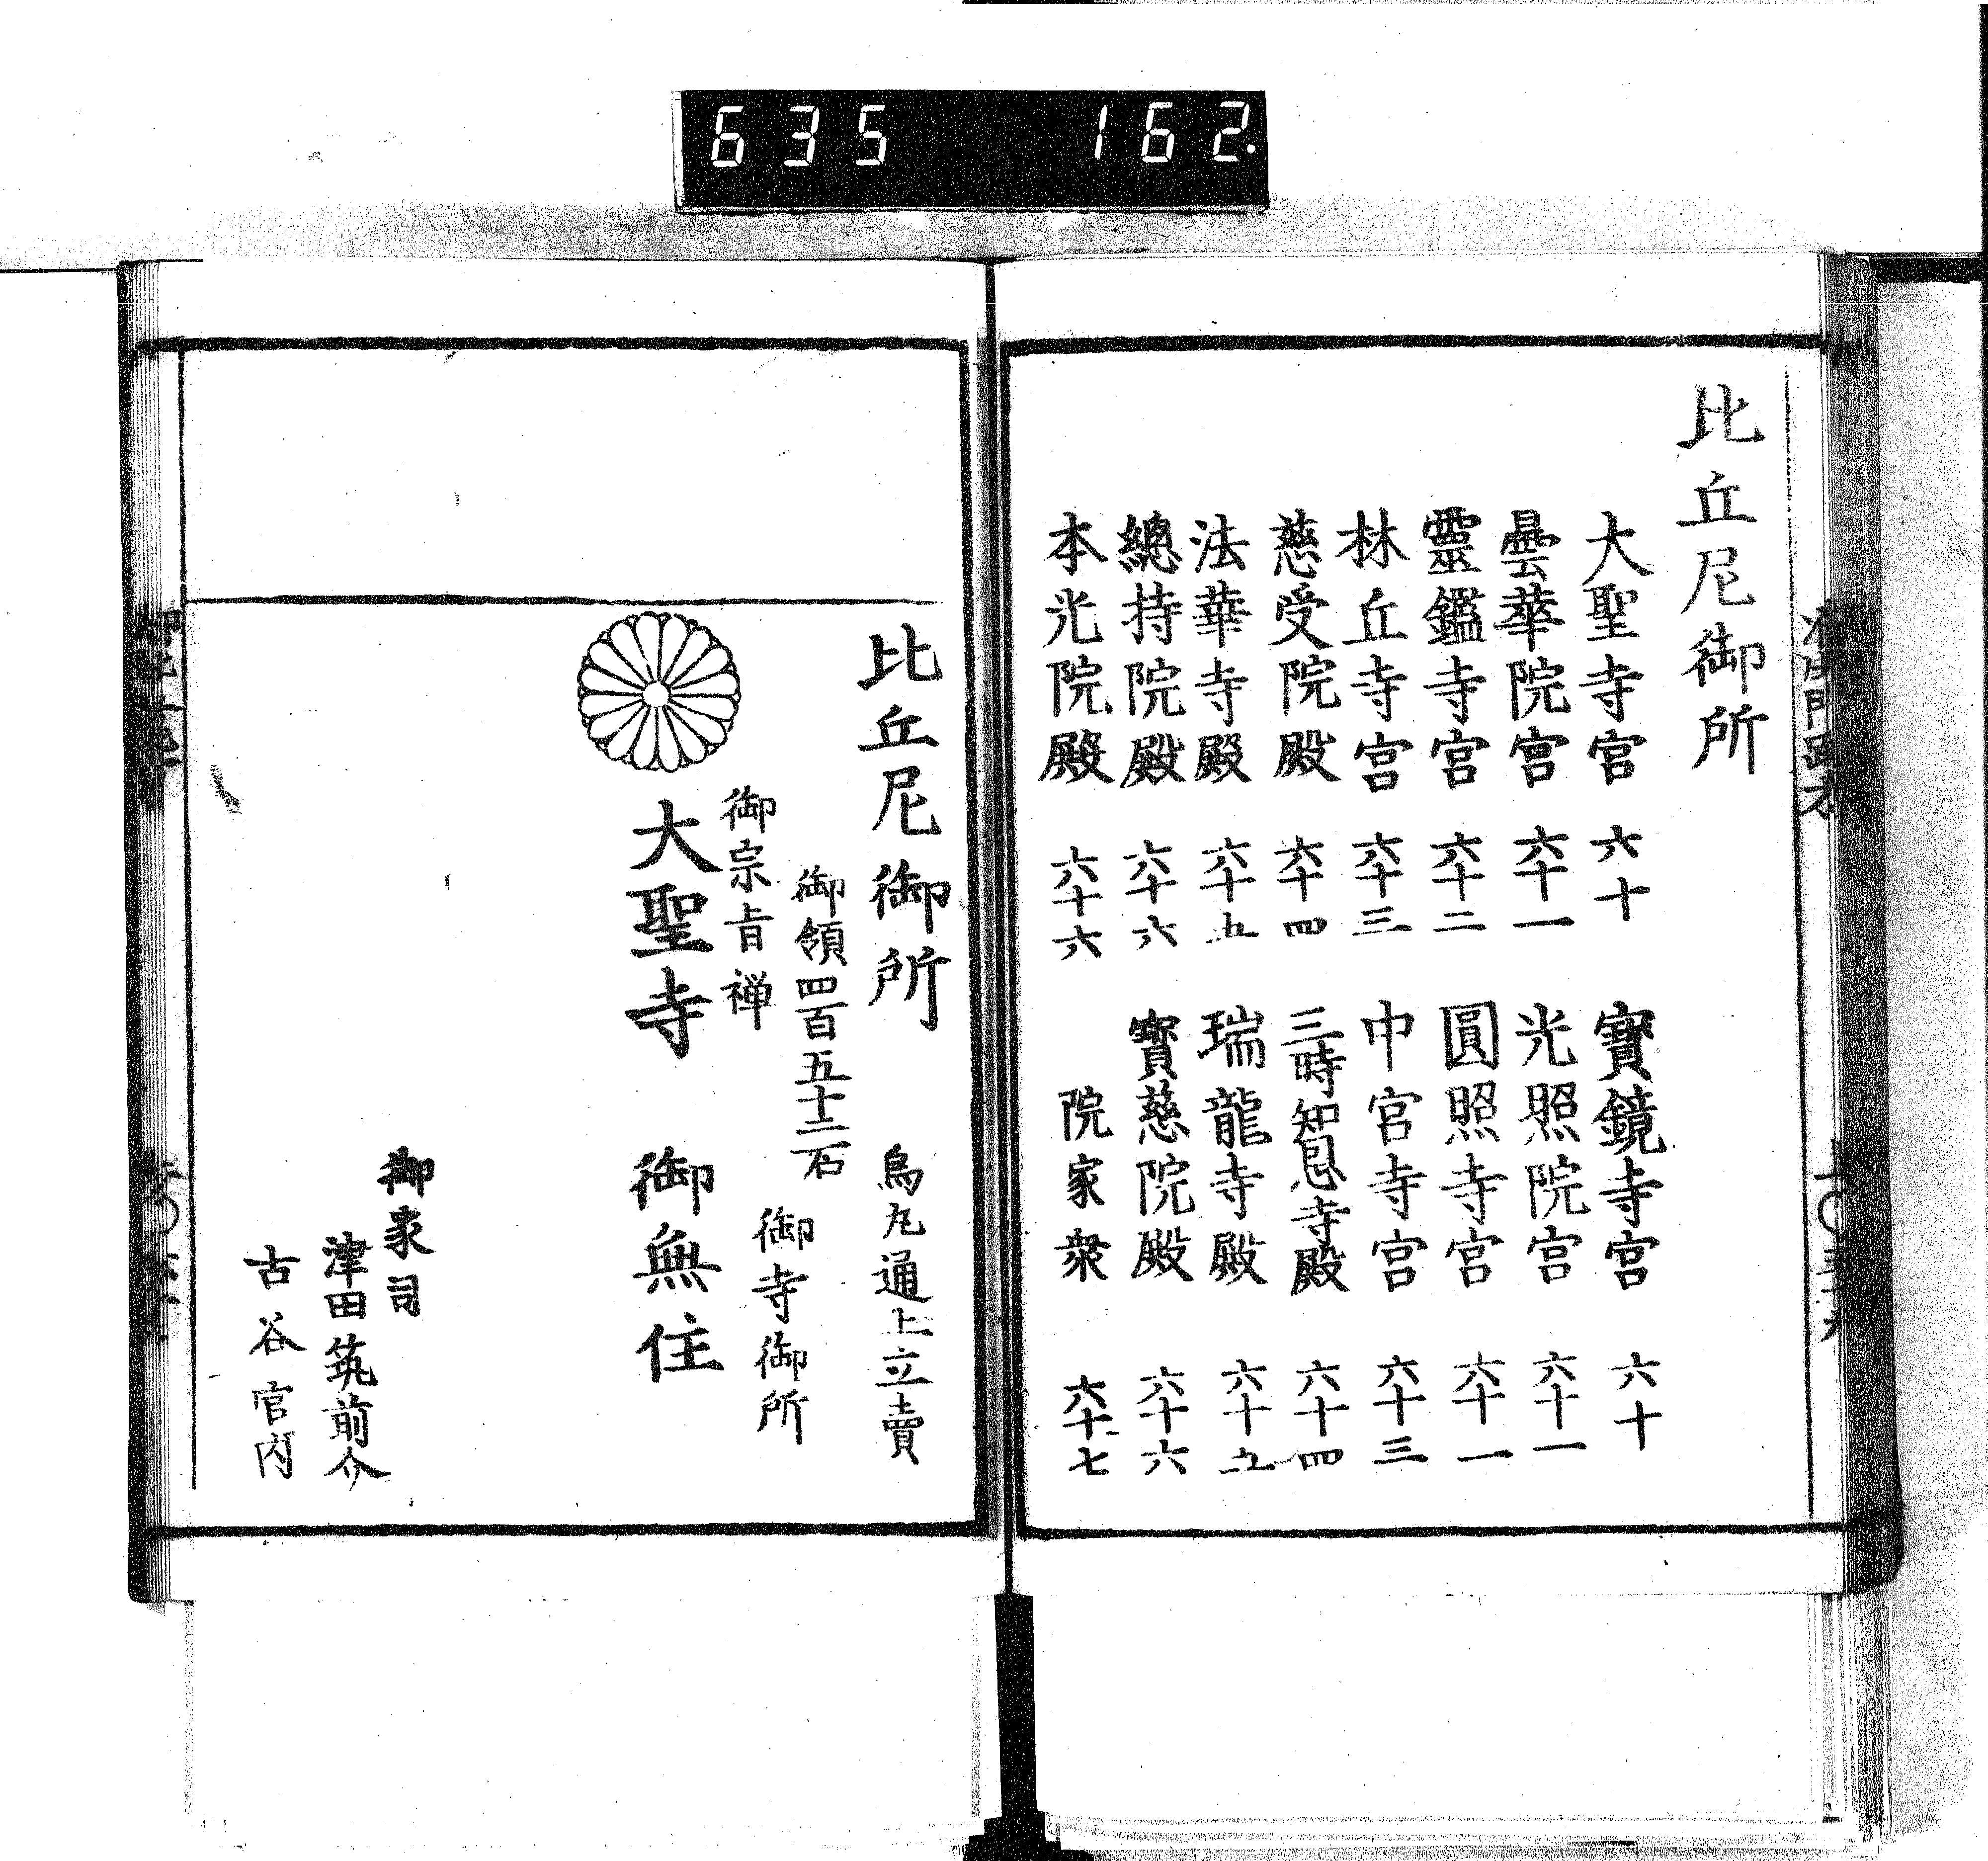 635 162.
比丘尼御所
大聖寺宮 六十 寶鏡寺宮 六十
曇華院宮 六十一 光照院宮 六十一
靈鑑寺宮 六十二 圓照寺宮 六十一
林丘寺宮 六十三 中宮寺宮 六十三
慈受院殿 六十四 三時知恩寺殿 六十四
法華寺殿 六十五 瑞龍寺殿 六十五
總持院殿 六十六 寳慈院殿 六十六
本光院殿 六十六 院家衆 六十七
比丘尼御所 烏丸通上立賣
御領四百五十二石
御宗旨禅 御寺御所
大聖寺 御無住
御家司
津田筑前介
古谷官内